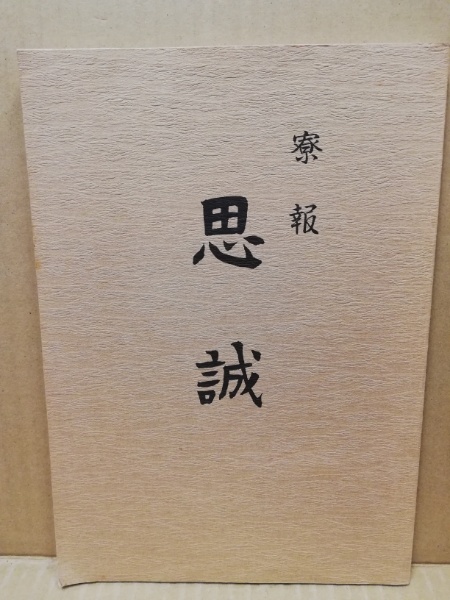 寮報
思誠